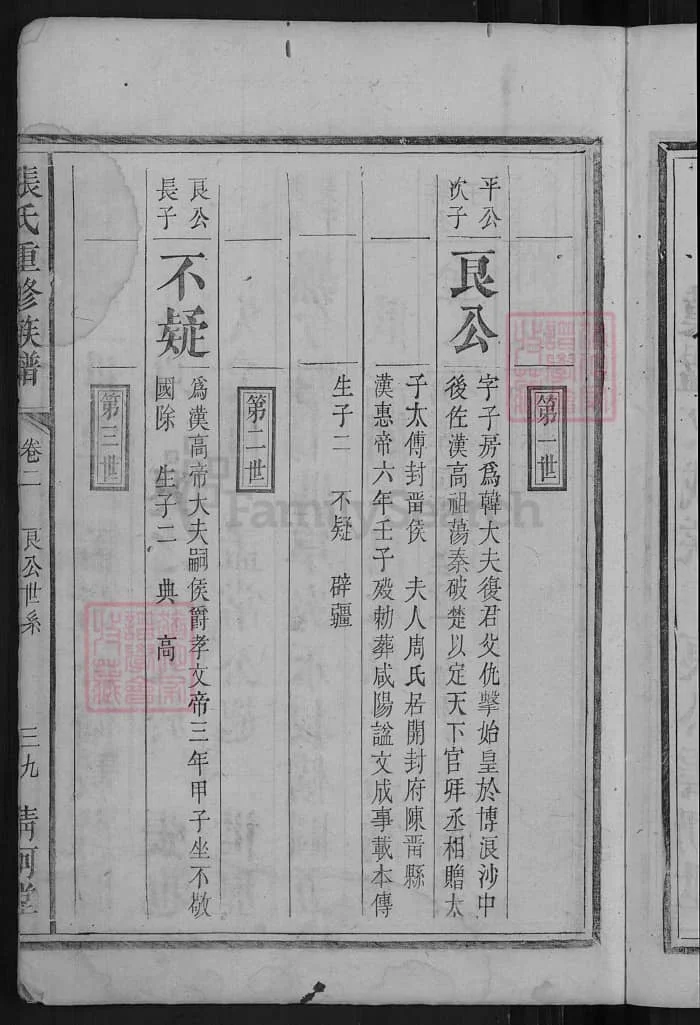 第一世
平公
次子
良公
字子房爲韓大夫復君父仇擊始皇於博浪沙中
後佐漢高祖蕩秦破楚以定天下官拜丞相贈太
子太傅封畱侯 夫人周氏居開封府陳畱縣
漢惠帝六年壬子歿勅葬咸陽諡文成事載本傳
生子二 不疑 辟疆
第二世
良公
長子
不疑
爲漢高帝大夫嗣侯爵孝文帝三年甲子坐不敬
國除 生子二 典 高
第三世
張氏重修族譜 卷二 良公世系 三九 清河堂
FamilySearch